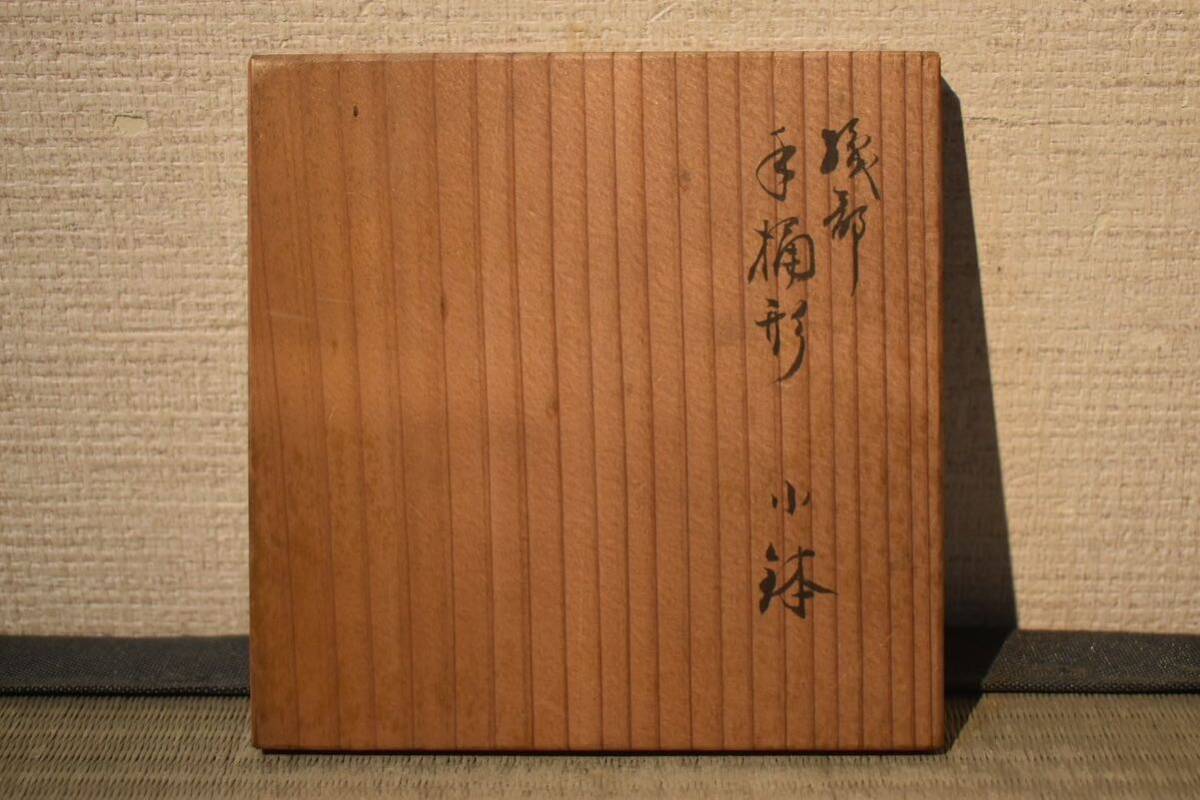 織部
手桶形 小鉢